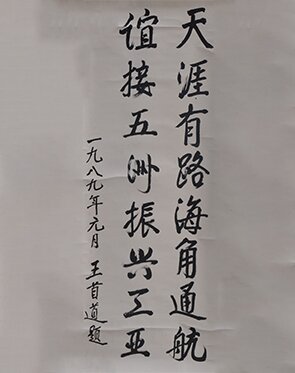 天涯有路海角通航
谊接五洲振兴工亚
一九八九年元月 王首道题